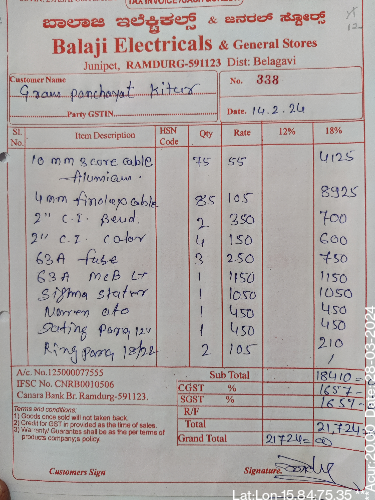 TAX INVOICE / CASH
ಬಾಲಾಜಿ ಇಲೆಕ್ಟ್ರಿಕಲ್ಸ್ & ಜನರಲ್ ಸ್ಟೋರ್ಸ್
Balaji Electricals & General Stores
Junipet, RAMDURG-591123 Dist: Belagavi
Customer Name
Gram panchayat Kitur
No. 338
Party GSTIN.
Date. 14.2.24
Sl. No. Item Description HSN Code Qty Rate 12% 18%
10 mm score cable 75 55 4125
Alumium.
4mm finolex cable 85 105 8925
2" C.I. Bend. 2 350 700
2" C.I. color 4 150 600
63A fuse 3 250 750
63A McB 1 1150 1150
Sigma stator 1 1050 1050
1 450 450
1 450 450
Ring 2 105 210
A/c No. 125000077555
Sub Total 18410
IFSC No. CNRB0010506
CGST % 1657-
Canara Bank Br. Ramdurg-591123.
SGST % 1657-
Terms and conditions:
R/F
1) Goods once sold will not taken back.
2) Credit for GST in provided as the time of sales.
Total 21,724
3) Warrenty/ Guarantee shall be as the per terms of
products company,s policy
Grand Total 21724=00
Customers Sign
Signature.
Lat:Lon-15.84:75.35